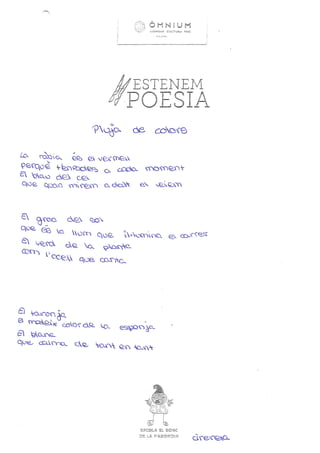 ÒMNIUM
ESTENEM
POESIA
Pluja de colors
La ràbia és el vermell
perquè t'enfades a cada moment
El blau del cel
que quan mirem a dalt el veiem
El groc del sol
que és la llum que il·lumina el carrer
El verd de la planta
com l'ocell que canta
El taronja
el mateix color de la esponja
El blanc
que calma de tant en tant
ESCOLA EL BOSC
DE LA PABORDIA